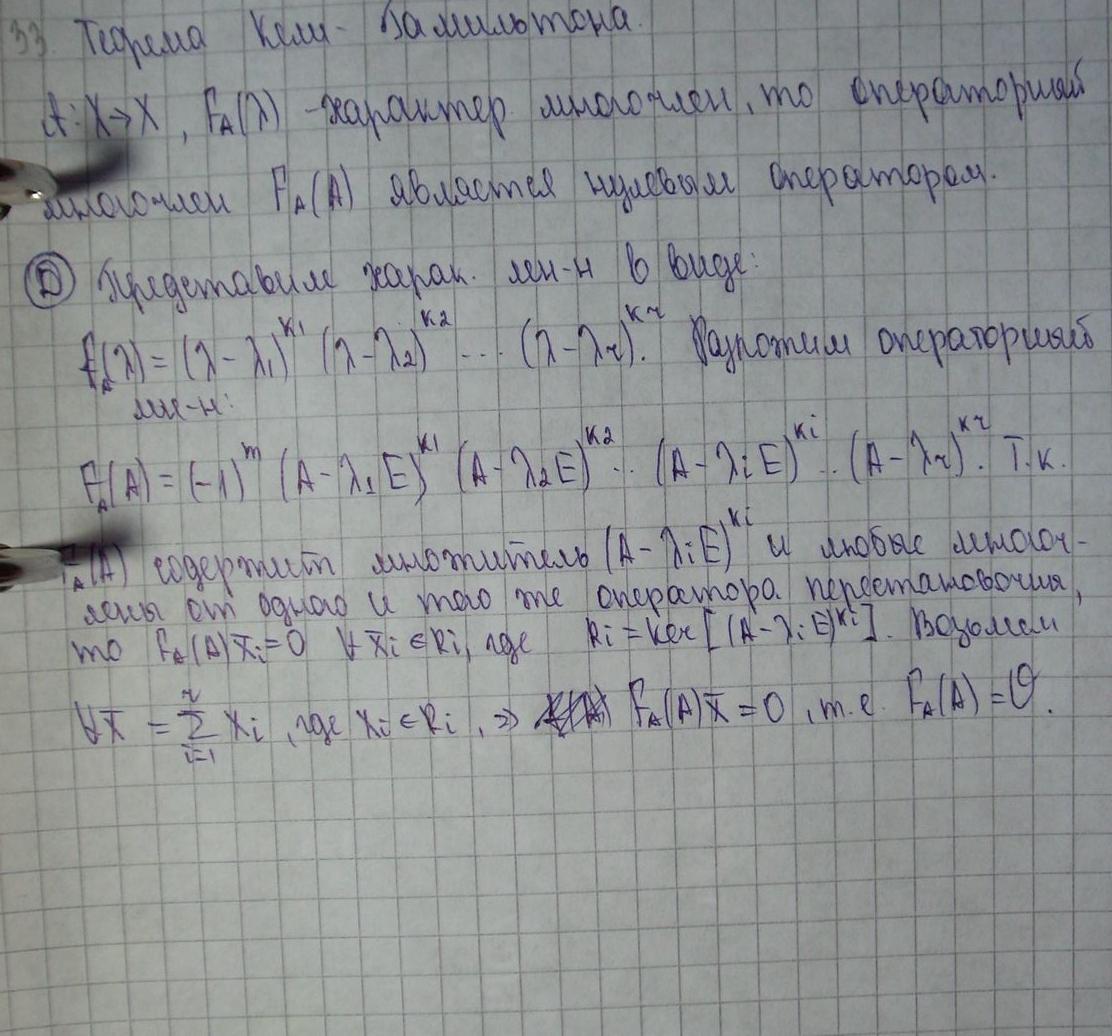 33. Теорема Кели-Гамильтона.
A: X→X, F_A(λ) - характер. многочлен, то операторный
многочлен F_A(A) является нулевым оператором.
D Представим харак. мн-н в виде:
f_A(λ) = (λ-λ₁)^{k1} (λ-λ₂)^{k2} ... (λ-λ_r)^{kr}. Разложим операторный
мн-н:
F_A(A) = (-1)^m (A-λ₁E)^{k1} (A-λ₂E)^{k2} .. (A-λ_iE)^{ki} .. (A-λ_r)^{kr}. Т.к.
F_A(A) содержит множитель (A-λ_iE)^{ki} и любые многоч-
лены от одного и того же оператора перестановочны,
то F_A(A)x̄_i=0 ∀x̄_i∈R_i, где R_i = Ker[(A-λ_iE)^{ki}]. Возьмем
∀x̄ = ∑_{i=1}^{r} x_i, где x_i∈R_i, ⇒ F_A(A)x̄=0, т.е. F_A(A)=Θ.